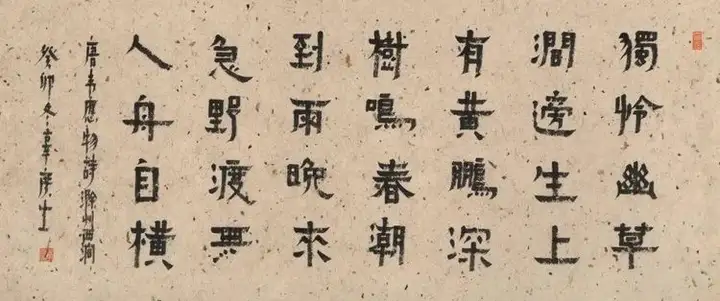 獨怜幽草
澗邊生上
有黃鵬深
樹鳴春潮
到雨晚來
急野渡無
人舟自橫
唐韋應物詩滁州西澗
癸卯冬